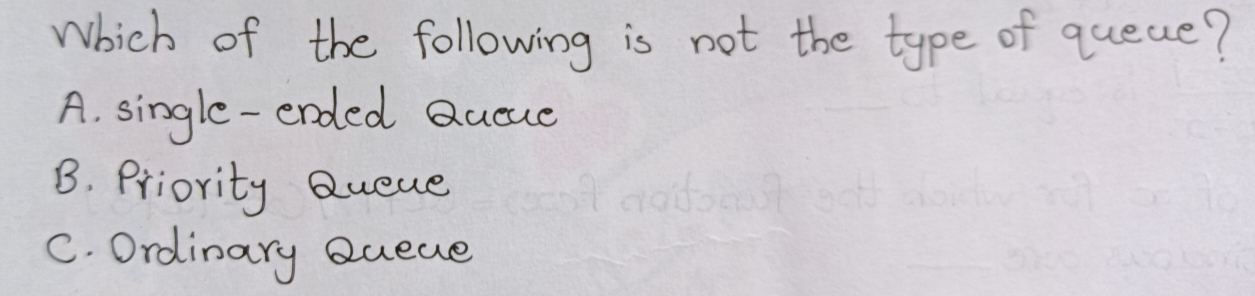 Which of the following is not the type of queue?
A. single-ended Queue
B. Priority Queue
C. Ordinary Queue